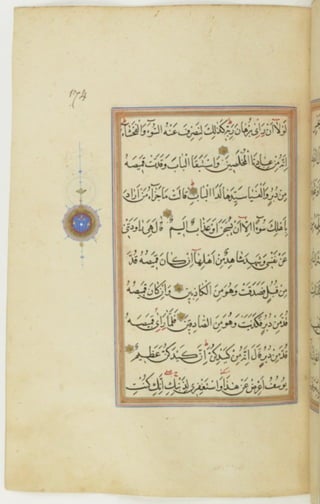 ١٧٤
لَوْلَا اَنْ رَاٰى بُرْهَانَ رَبِّهِ كَذٰلِكَ لِنَصْرِفَ عَنْهُ السُّوءَ وَالْفَحْشَاءَ
اِنَّهُ مِنْ عِبَادِنَا الْمُخْلَصِينَ وَاسْتَبَقَا الْبَابَ وَقَدَّتْ قَمِيصَهُ
مِنْ دُبُرٍ وَاَلْفَيَا سَيِّدَهَا لَدَا الْبَابِ قَالَتْ مَا جَزَاءُ مَنْ اَرَادَ
بِاَهْلِكَ سُوءًا اِلَّا اَنْ يُسْجَنَ اَوْ عَذَابٌ اَلِيمٌ قَالَ هِىَ رَاوَدَتْنِى
عَنْ نَفْسِى وَشَهِدَ شَاهِدٌ مِنْ اَهْلِهَا اِنْ كَانَ قَمِيصُهُ قُدَّ
مِنْ قُبُلٍ فَصَدَقَتْ وَهُوَ مِنَ الْكَاذِبِينَ وَاِنْ كَانَ قَمِيصُهُ
قُدَّ مِنْ دُبُرٍ فَكَذَبَتْ وَهُوَ مِنَ الصَّادِقِينَ فَلَمَّا رَاٰى قَمِيصَهُ
قُدَّ مِنْ دُبُرٍ قَالَ اِنَّهُ مِنْ كَيْدِكُنَّ اِنَّ كَيْدَكُنَّ عَظِيمٌ
يُوسُفُ اَعْرِضْ عَنْ هٰذَا وَاسْتَغْفِرِى لِذَنْبِكِ اِنَّكِ كُنْتِ